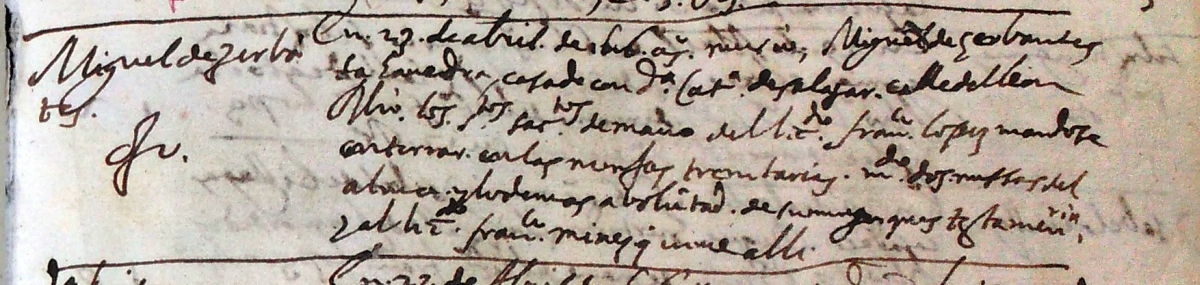 Miguel de zerbã
tes.
En. 23. de abril. de 1616 aºs. murio, Miguel de zerbantes
sahauedra, casado con Dª. Catª. de salazar. calle del leon
Rio. los. stos. sacrtos de mano del lizdo. franco. lopez mandose
enterrar. en las monjas trenitarias. mdo. dos missas del
alma. y lo demas a boluntad. de su muger ques testamenrin
y al lizdo. franco. minez q uiue alli
En. 23. de Abril